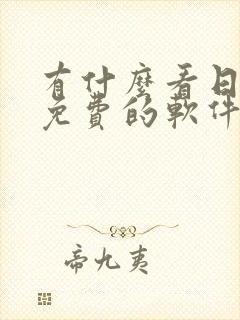 有什麽看日
免費的軟件
帝九夷